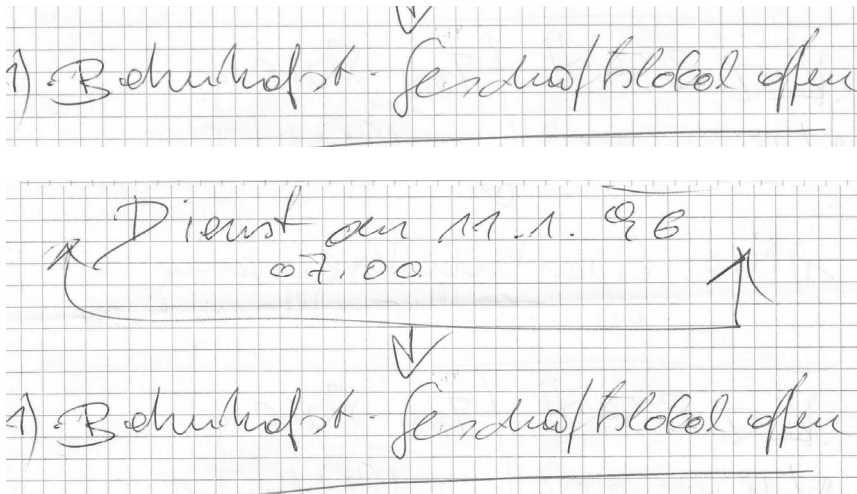 1) Bahnhofst - Geschäftslokal offen
Dienst am 11.1. 96
07.00
1) Bahnhofst - Geschäftslokal offen